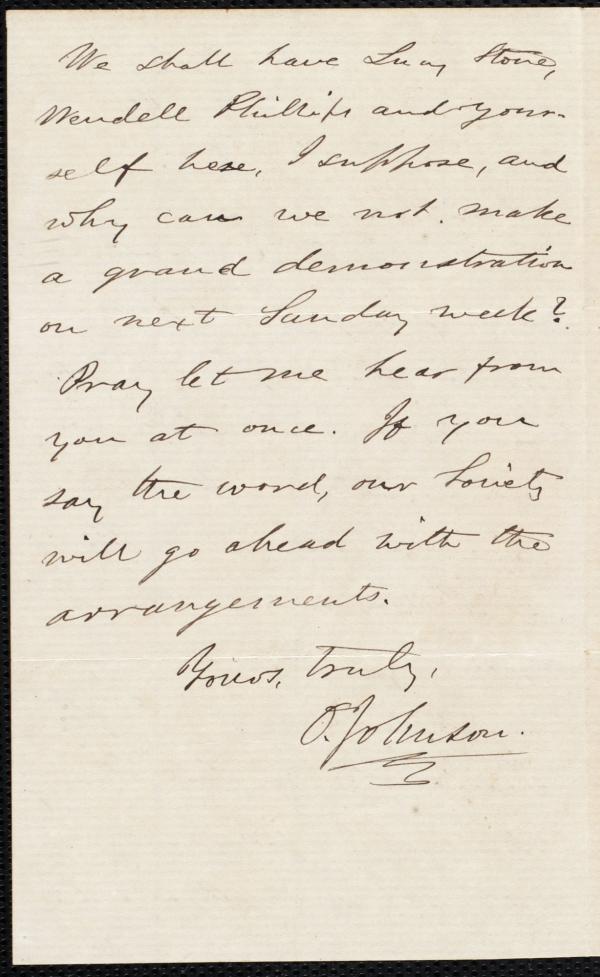 We shall have Lucy Stone,
Wendell Phillips and your-
self here, I suppose, and
why can we not make
a grand demonstration
on next Sunday week?
Pray let me hear from
you at once. If you
say the word, our Society
will go ahead with the
arrangements.
Yours, truly,
O. Johnson.